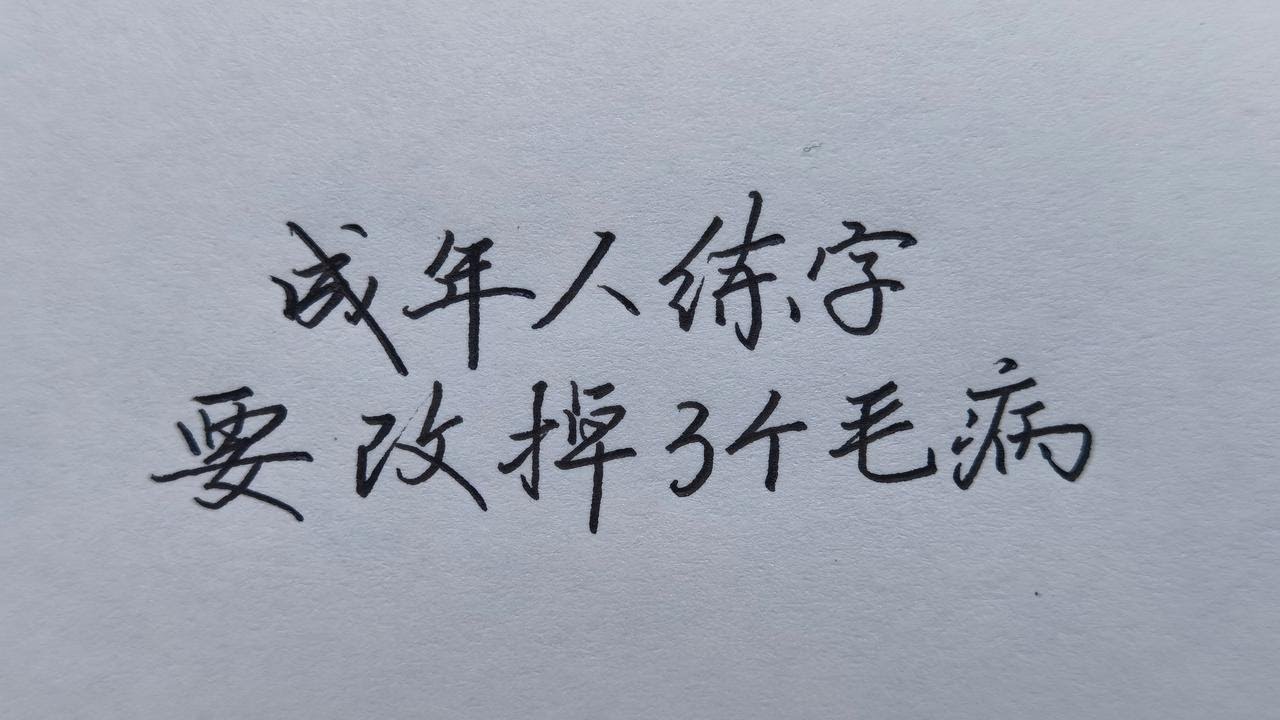 成年人练字
要改掉3个毛病